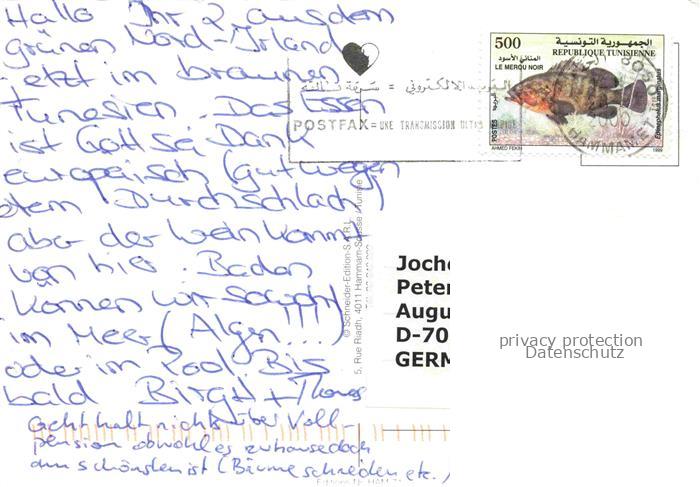 Hallo Ihr 2 aus dem
grünen Nord-Irland
jetzt im braunen
Tunesien. Das Essen
ist Gott sei Dank
europäisch (gut wegen
dem Durchschlach)
aber der Wein kommt
von hier. Baden
können wir sowohl
im Meer (Algen!!!)
oder im Pool. Bis
bald Birgit + Thomas
geht halt nichts über Voll-
pension obwohl es zuhause doch
am schönsten ist (Bäume schneiden etc.)
500
الجمهورية التونسية
REPUBLIQUE TUNISIENNE
المناني الأسود
LE MEROU NOIR
Epinephelus marginatus
POSTES
البريد
AHMED FEKIH
1999
HAMMAM
البريد الالكتروني =
POSTFAX = UNE TRANSMISSION
© Schneider-Edition-S.A.R.L.
5, Rue Riadh, 4011 Hammam-Sousse / Tunisie
Joche
Peter
Augu
D-70
GERM
privacy protection
Datenschutz